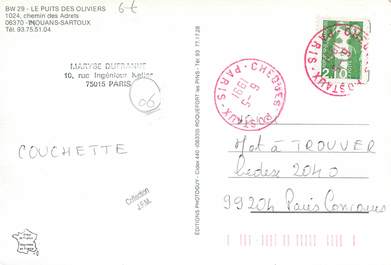 BW 29 - LE PUITS DES OLIVIERS
1024, chemin des Adrets
06370 - MOUANS-SARTOUX
Tél. 93.75.51.04
6€
MARYSE DUFRANNE
10, rue Ingénieur Keller
75015 PARIS
06
COUCHETTE
Collection
J.F.M.
EDITIONS PHOTOGUY - Cidex 440 - 06330 ROQUEFORT les PINS - Tél. 93 77 11 28
CHEQUES POSTAUX - PARIS
1991
2,10
Mot à TROUVER
Cedex 2040
99204 Paris Concours